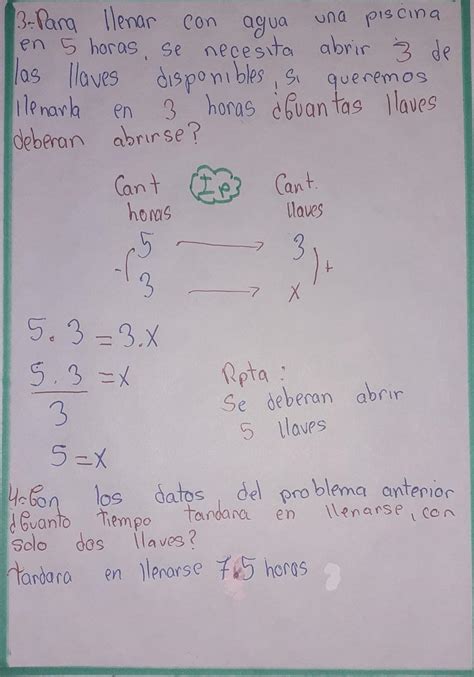 3.- Para llenar con agua una piscina
en 5 horas, se necesita abrir 3 de
las llaves disponibles, si queremos
llenarla en 3 horas ¿Cuantas llaves
deberan abrirse?
Cant Ip Cant.
horas llaves
5 → 3
- ( ) +
3 → x
5 . 3 = 3 . x
5 . 3 = x
3
Rpta :
Se deberan abrir
5 llaves
5 = x
4.- Con los datos del problema anterior
¿Cuanto tiempo tandara en llenarse, con
solo dos llaves?
tardara en llenarse 7.5 horas